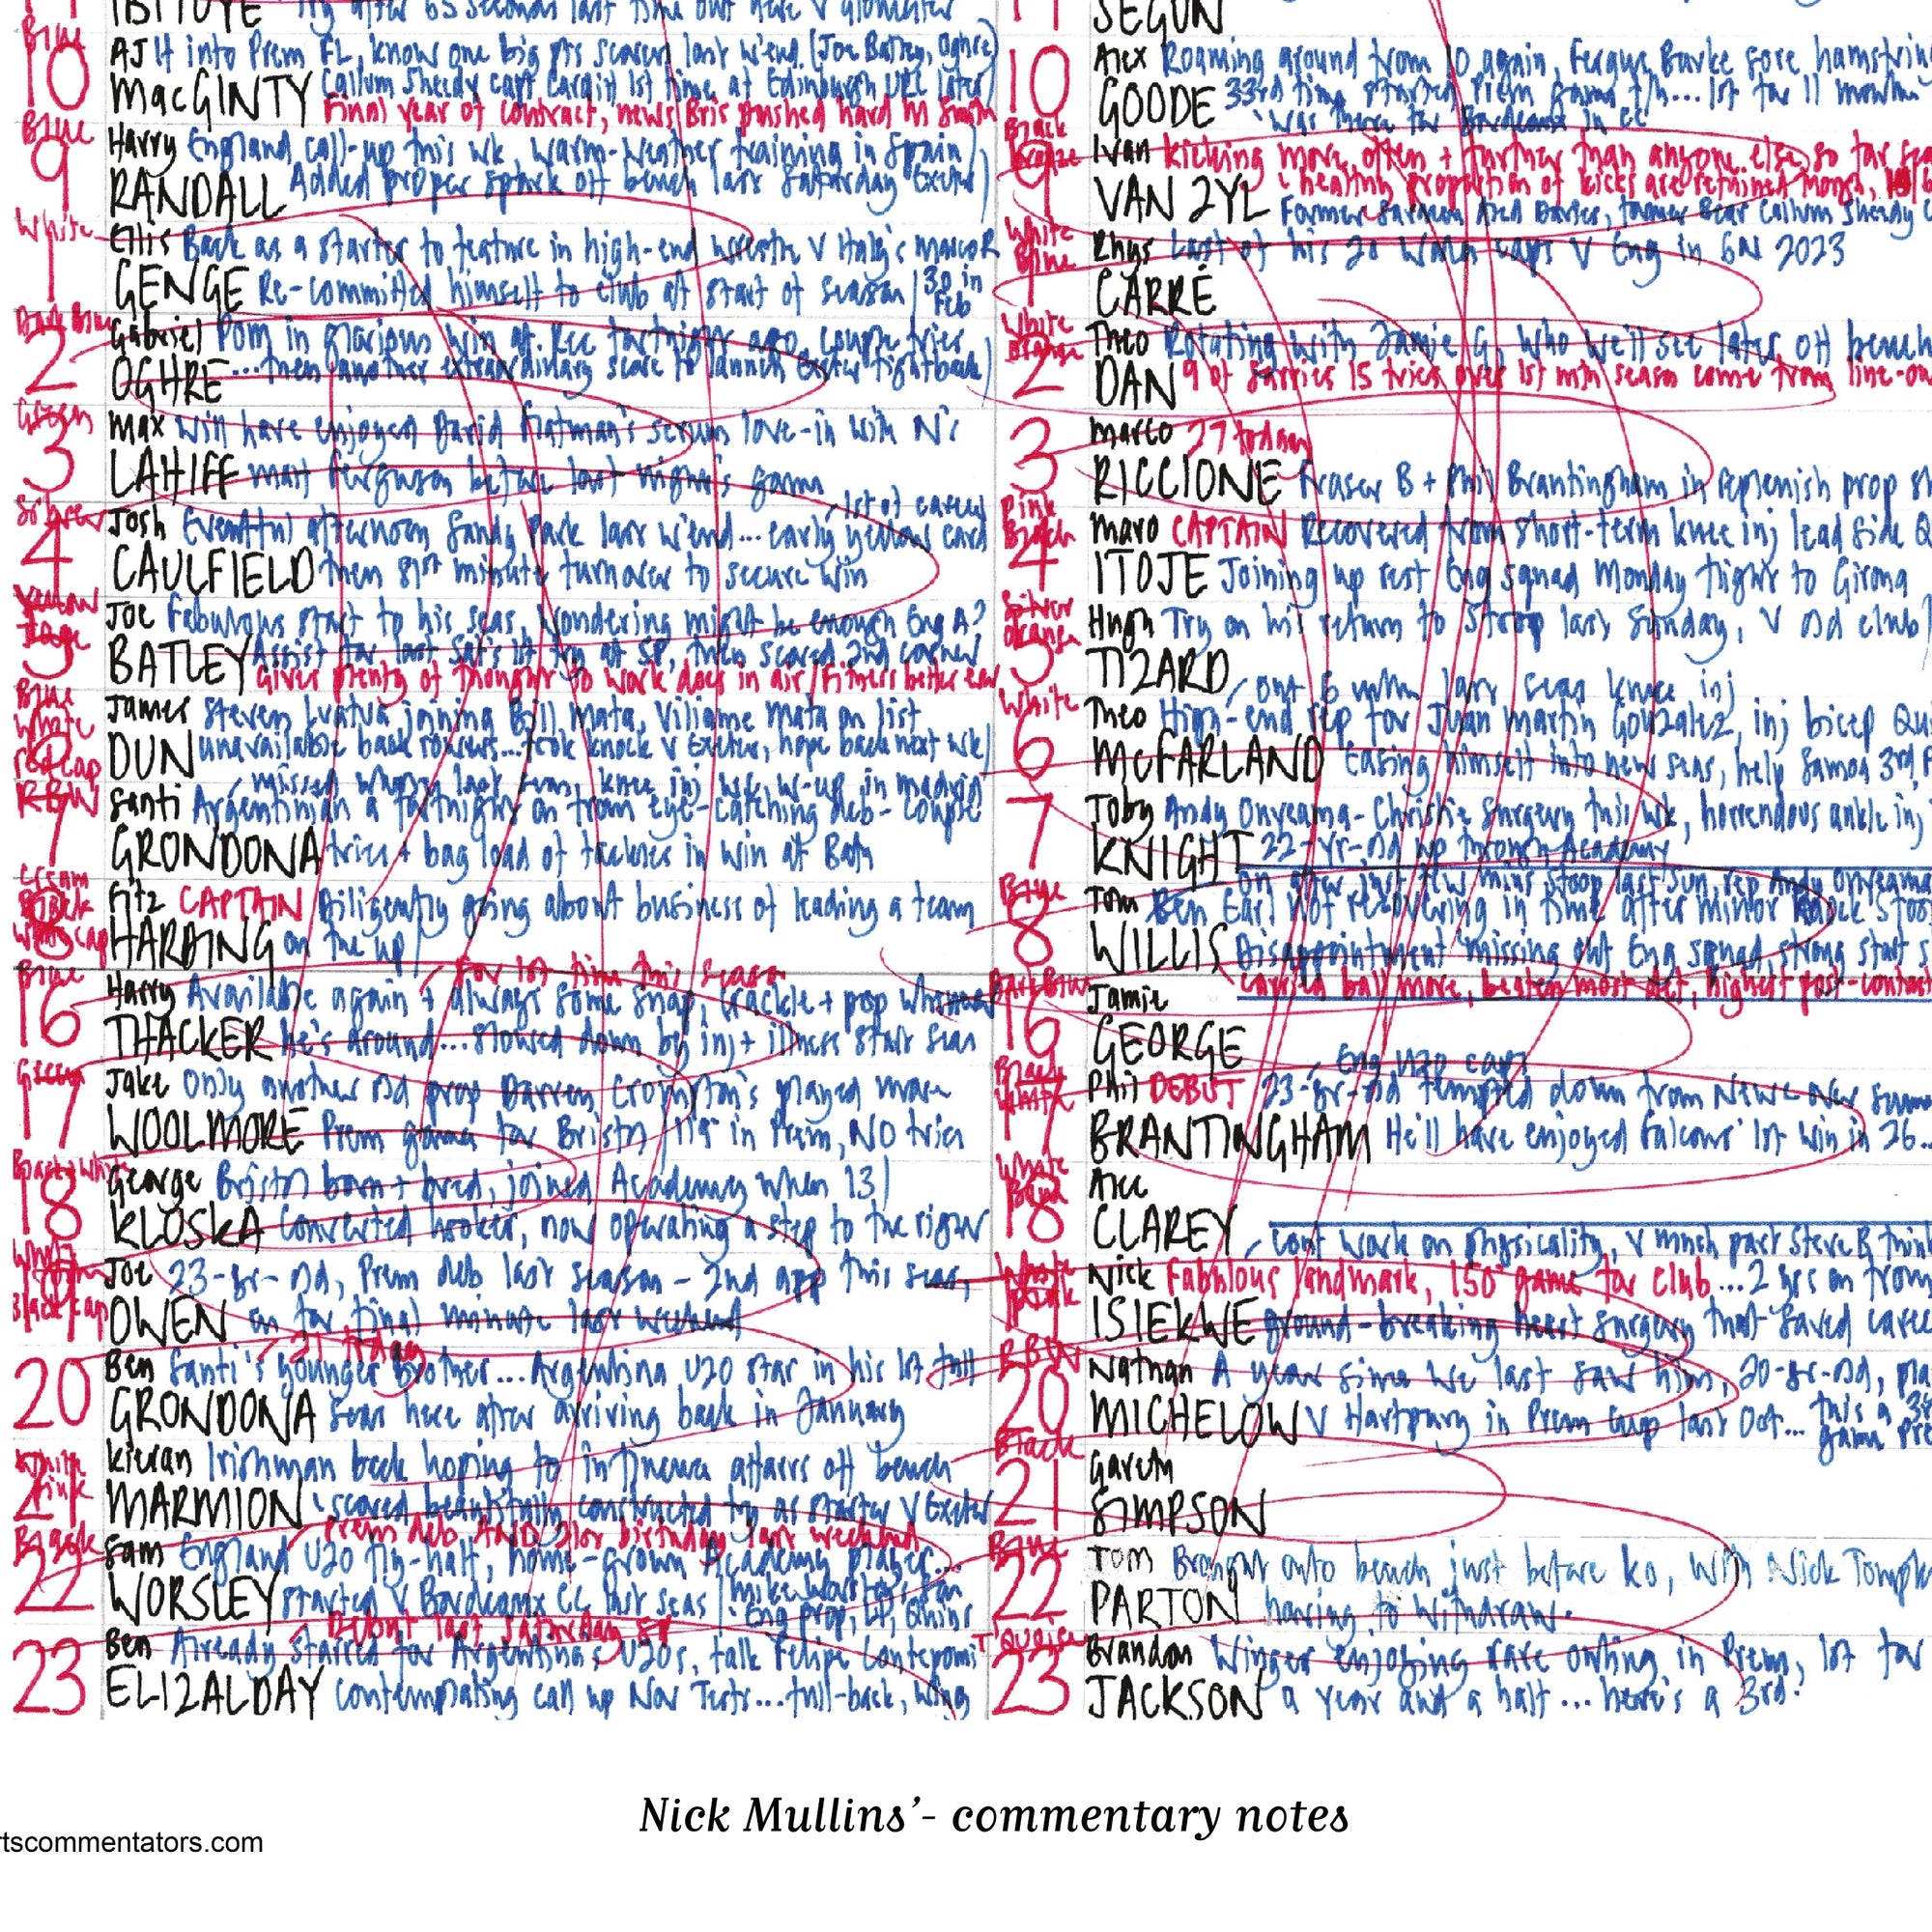 IBITOYE Try after 63 seconds last time out here v Gloucester
Blue
10 AJ 14 into Prem FL, know one big pts scorer last w'end (Joe Batley, Oghre)
MacGINTY Callum Sheedy capt Cardiff 1st time at Edinburgh URC later
Final year of contract, news Bris pushed hard M Smith
Blue
9 Harry England call-up this wk, warm-weather training in Spain
RANDALL Added proper spark off bench last Saturday Exeter
White
1 Ellis Back as a starter to feature in high-end wrestle v Italy's Marco R
GENGE Re-committed himself to club at start of season / 30 in Feb
Dark Blue
2 Gabriel POM in glorious win at Rec fortnight ago, couple tries
OGHRE ...then another extraordinary score to launch Exeter fightback
Green
3 Max Will have enjoyed David Flatman's scrum love-in with N's
LAHIFF Matt Ferguson before last night's game
Silver
1st of career
4 Josh Eventful afternoon Sandy Park last w'end... early yellow card
CAULFIELD then 81st minute turnover to secure win
Yellow
5 Joe Fabulous start to his seas, wondering might be enough Eng A?
BATLEY Assist for last Sat's 1st try at SP, then scored 2nd corner
Gives plenty of thought to work does in air / Fitness better ever
Blue
White
red cap
6 James Steven Luatua joining Bill Mata, Viliame Mata on list
DUN unavailable back rowers... took knock v Exeter, hope back next wk
missed whopping last seas, knee inj, wk w-up in Madrid
RBW
7 Santi Argentinian a fortnight on from eye-catching deb - couple
GRONDONA tries + bag load of tackles in win at Bath
Cream
Black
8 Fitz CAPTAIN Diligently going about business of leading a team
HARDING on the up
Blue
For 1st time this season
16 Harry Available again + always some snap, crackle + pop whenever
THACKER he's around... slowed down by inj + illness start seas
Green
17 Jake Only another old prop Darren Crompton's played more
WOOLMORE Prem games for Bristol, 119 in Prem, NO tries
Black + White
18 George Bristol born + bred, joined Academy when 13
KLOSKA Converted hooker, now operating a step to the right
Black cap
19 Joe 23-yr-old, Prem deb last season - 2nd app this seas,
OWEN on for final minute last weekend
21 today
20 Ben Santi's younger brother... Argentina U20 star in his 1st full
GRONDONA seas here after arriving back in January
White
Pink
21 Kieran Irishman back hoping to influence affairs off bench
MARMION scored beautifully constructed try as starter v Exeter
Prem deb AND 21st birthday last weekend
Black
22 Sam England U20 fly-half, home-grown Academy player...
WORSLEY started v Bordeaux CC last seas / Mike Worsley's son
Eng prop, LI, Quins
Debut last Saturday SP
23 Ben Already starred for Argentina's U20s, talk Felipe Contepomi
ELIZALDAY contemplating call up Nov Tests... full-back, wing
SEGUN
10 Alex Roaming around from 10 again, Fergus Burke sore hamstring
GOODE 33rd time started Prem game f/h... 1st for 11 months
was there for Bordeaux in CC
Black
Bronze
9 Ivan kicking more often + further than anyone else so far seas
VAN ZYL healthy proportion of kicks are retained
Former Saracen Aled Davies, former Bear Callum Sheedy
White
Blue
1 Rhys Last of his 20 Wales caps v Eng in 6N 2023
CARRÉ
White
Orange
2 Theo Rotating with Jamie G, who we'll see later off bench
DAN 9 of Sarries 15 tries over 1st mth season come from line-out
3 Marco 27 today
RICCIONE Fraser B + Phil Brantingham in replenish prop
Pink
Black
4 Maro CAPTAIN Recovered from short-term knee inj lead side
ITOJE Joining up rest Eng squad Monday flight to Girona
Silver
Orange
5 Hugh Try on his return to Stoop last Sunday, v old club
TIZARD
out 6 mths last seas knee inj
White
6 Theo High-end rep for Juan Martin Gonzalez, inj bicep
McFARLAND Easing himself into new seas, help Samoa 3rd
7 Toby Andy Onyeama-Christie surgery this wk, horrendous ankle inj
KNIGHT 22-yr-old up through Academy
on after just few mins Stoop last Sun, rep Andy Onyeama
Blue
8 Tom Ben Earl not recovering in time after minor knock
WILLIS Disappointment missing out Eng squad, strong start
carried ball more, beaten most def, highest post-contact
Dark Blue
16 Jamie
GEORGE
Eng U20 caps
Black
White
17 Phil DEBUT 23-yr-old tempted down from Newc over summer
BRANTINGHAM He'll have enjoyed Falcons' 1st win in 26...
White
18 Alec
CLAREY
cont work on physicality, v much part Steve B
White
Pink
19 Nick Fabulous landmark, 150 game for club...2 yrs on from
ISIEKWE ground-breaking heart surgery that saved
RBW
20 Nathan A year since we last saw him, 20-yr-old,
MICHELOW v Hartpury in Prem Cup last Oct... this a 3rd
Black
21 Gareth
SIMPSON
Blue
22 Tom Brought onto bench just before ko, with Nick
PARTON having to withdraw.
Turquoise
23 Brandon Winger enjoying rare outing in Prem, 1st for
JACKSON a year and a half... here's a 3rd!
Nick Mullins'- commentary notes
rtscommentators.com